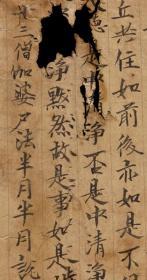 丘共住如前後亦如是不
憲是中清淨不是中清淨
淨黙然故是事如是
世三僧伽婆尸法半月半月說